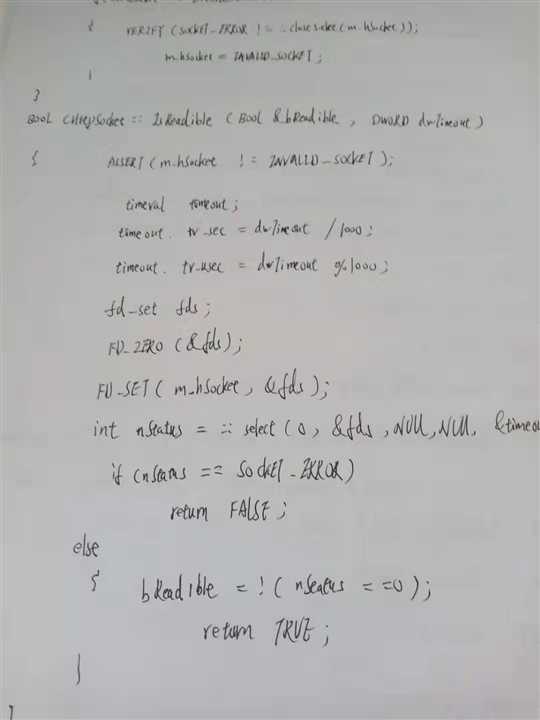 { VERIFY (SOCKET_ERROR != ::closesocket(m_hSocket));
m_hSocket = INVALID_SOCKET;
}
}
BOOL CHttpSocket :: IsReadible (BOOL &bReadible, DWORD dwTimeout)
{ ASSERT(m_hSocket != INVALID_SOCKET);
timeval timeout;
timeout. tv_sec = dwTimeout /1000;
timeout. tv_usec = dwTimeout %1000;
fd_set fds;
FD_ZERO (&fds);
FD_SET( m_hSocket, &fds);
int nStatus = :: select (0, &fds, NULL, NULL, &timeou
if (nStatus == SOCKET_ERROR)
return FALSE;
else
{ bReadible = ! ( nStatus == 0);
return TRUE;
}
}